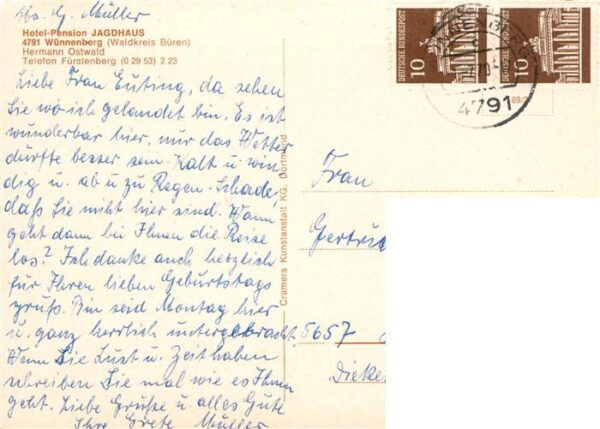 Abs. G. Müller
Hotel-Pension JAGDHAUS
4791 Wünnenberg (Waldkreis Büren)
Hermann Ostwald
Telefon Fürstenberg (0 29 53) 2 23
Liebe Frau Eüting, da sehen
Sie wo ich gelandet bin. Es ist
wunderbar hier, nur das Wetter
dürfte besser sein. Kalt u. win
dig u. ab u. zu Regen. Schade,
daß Sie nicht hier sind. Wann
geht dann bei Ihnen die Reise
los? Ich danke auch herzlich
für Ihren lieben Geburtstags
gruß. Bin seid Montag hier
u. ganz herrlich untergebracht.
Wenn Sie Lust u. Zeit haben
schreiben Sie mal wie es Ihnen
geht. Liebe Grüße u. alles Gute
Ihre Grete Müller
Cramers Kunstanstalt KG, Dortmund
DEUTSCHE BUNDESPOST
10
DEUTSCHE BUNDESPOST
10
4791
Frau
Gertrud
5657
Dieke